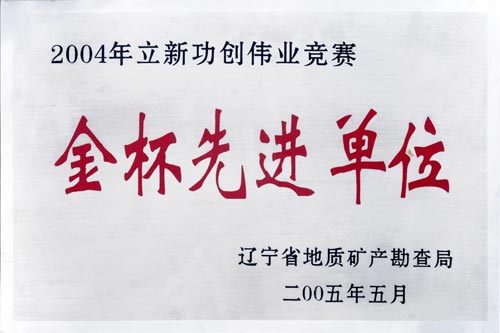 2004年立新功创伟业竞赛
金杯先进单位
辽宁省地质矿产勘查局
二00五年五月